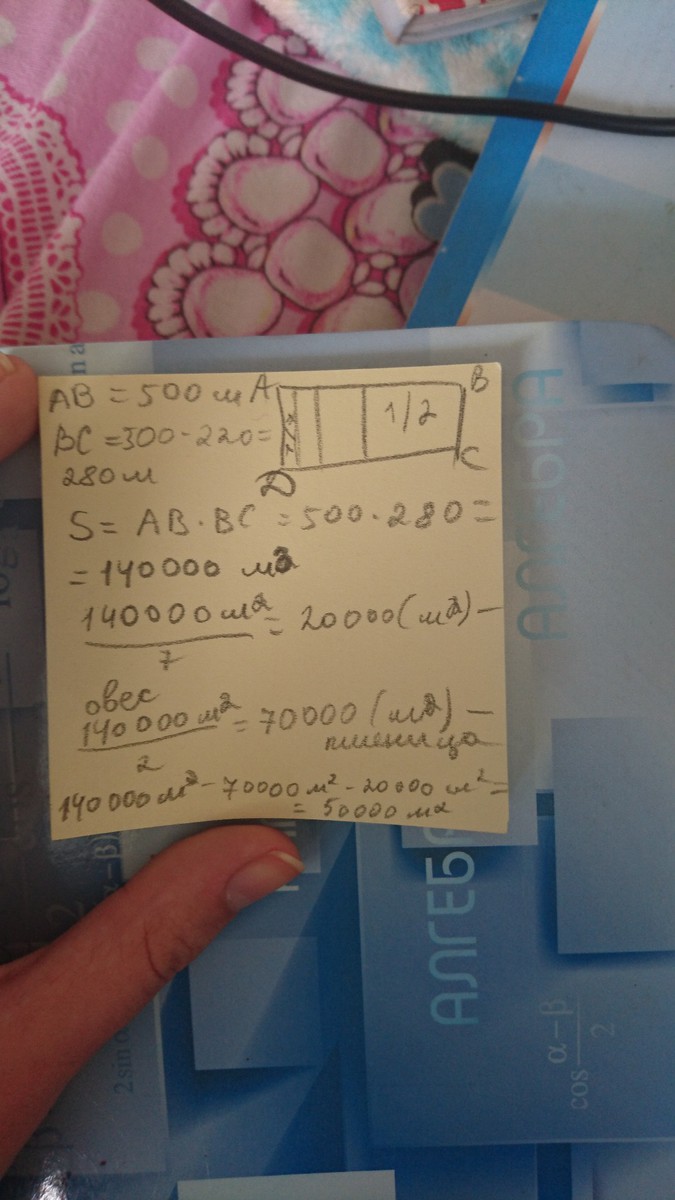 AB = 500 м
BC = 500 - 220 =
280 м
A
B
C
D
1/7
1/2
S = AB · BC = 500 · 280 =
= 140000 м2
140000 м2
7
= 20000 (м2) -
овес
140000 м2
2
= 70000 (м2) -
пшеница
140000 м2 - 70000 м2 - 20000 м2 =
= 50000 м2
АЛГЕБРА
АЛГЕБ
cos α – β
2
2 sin α